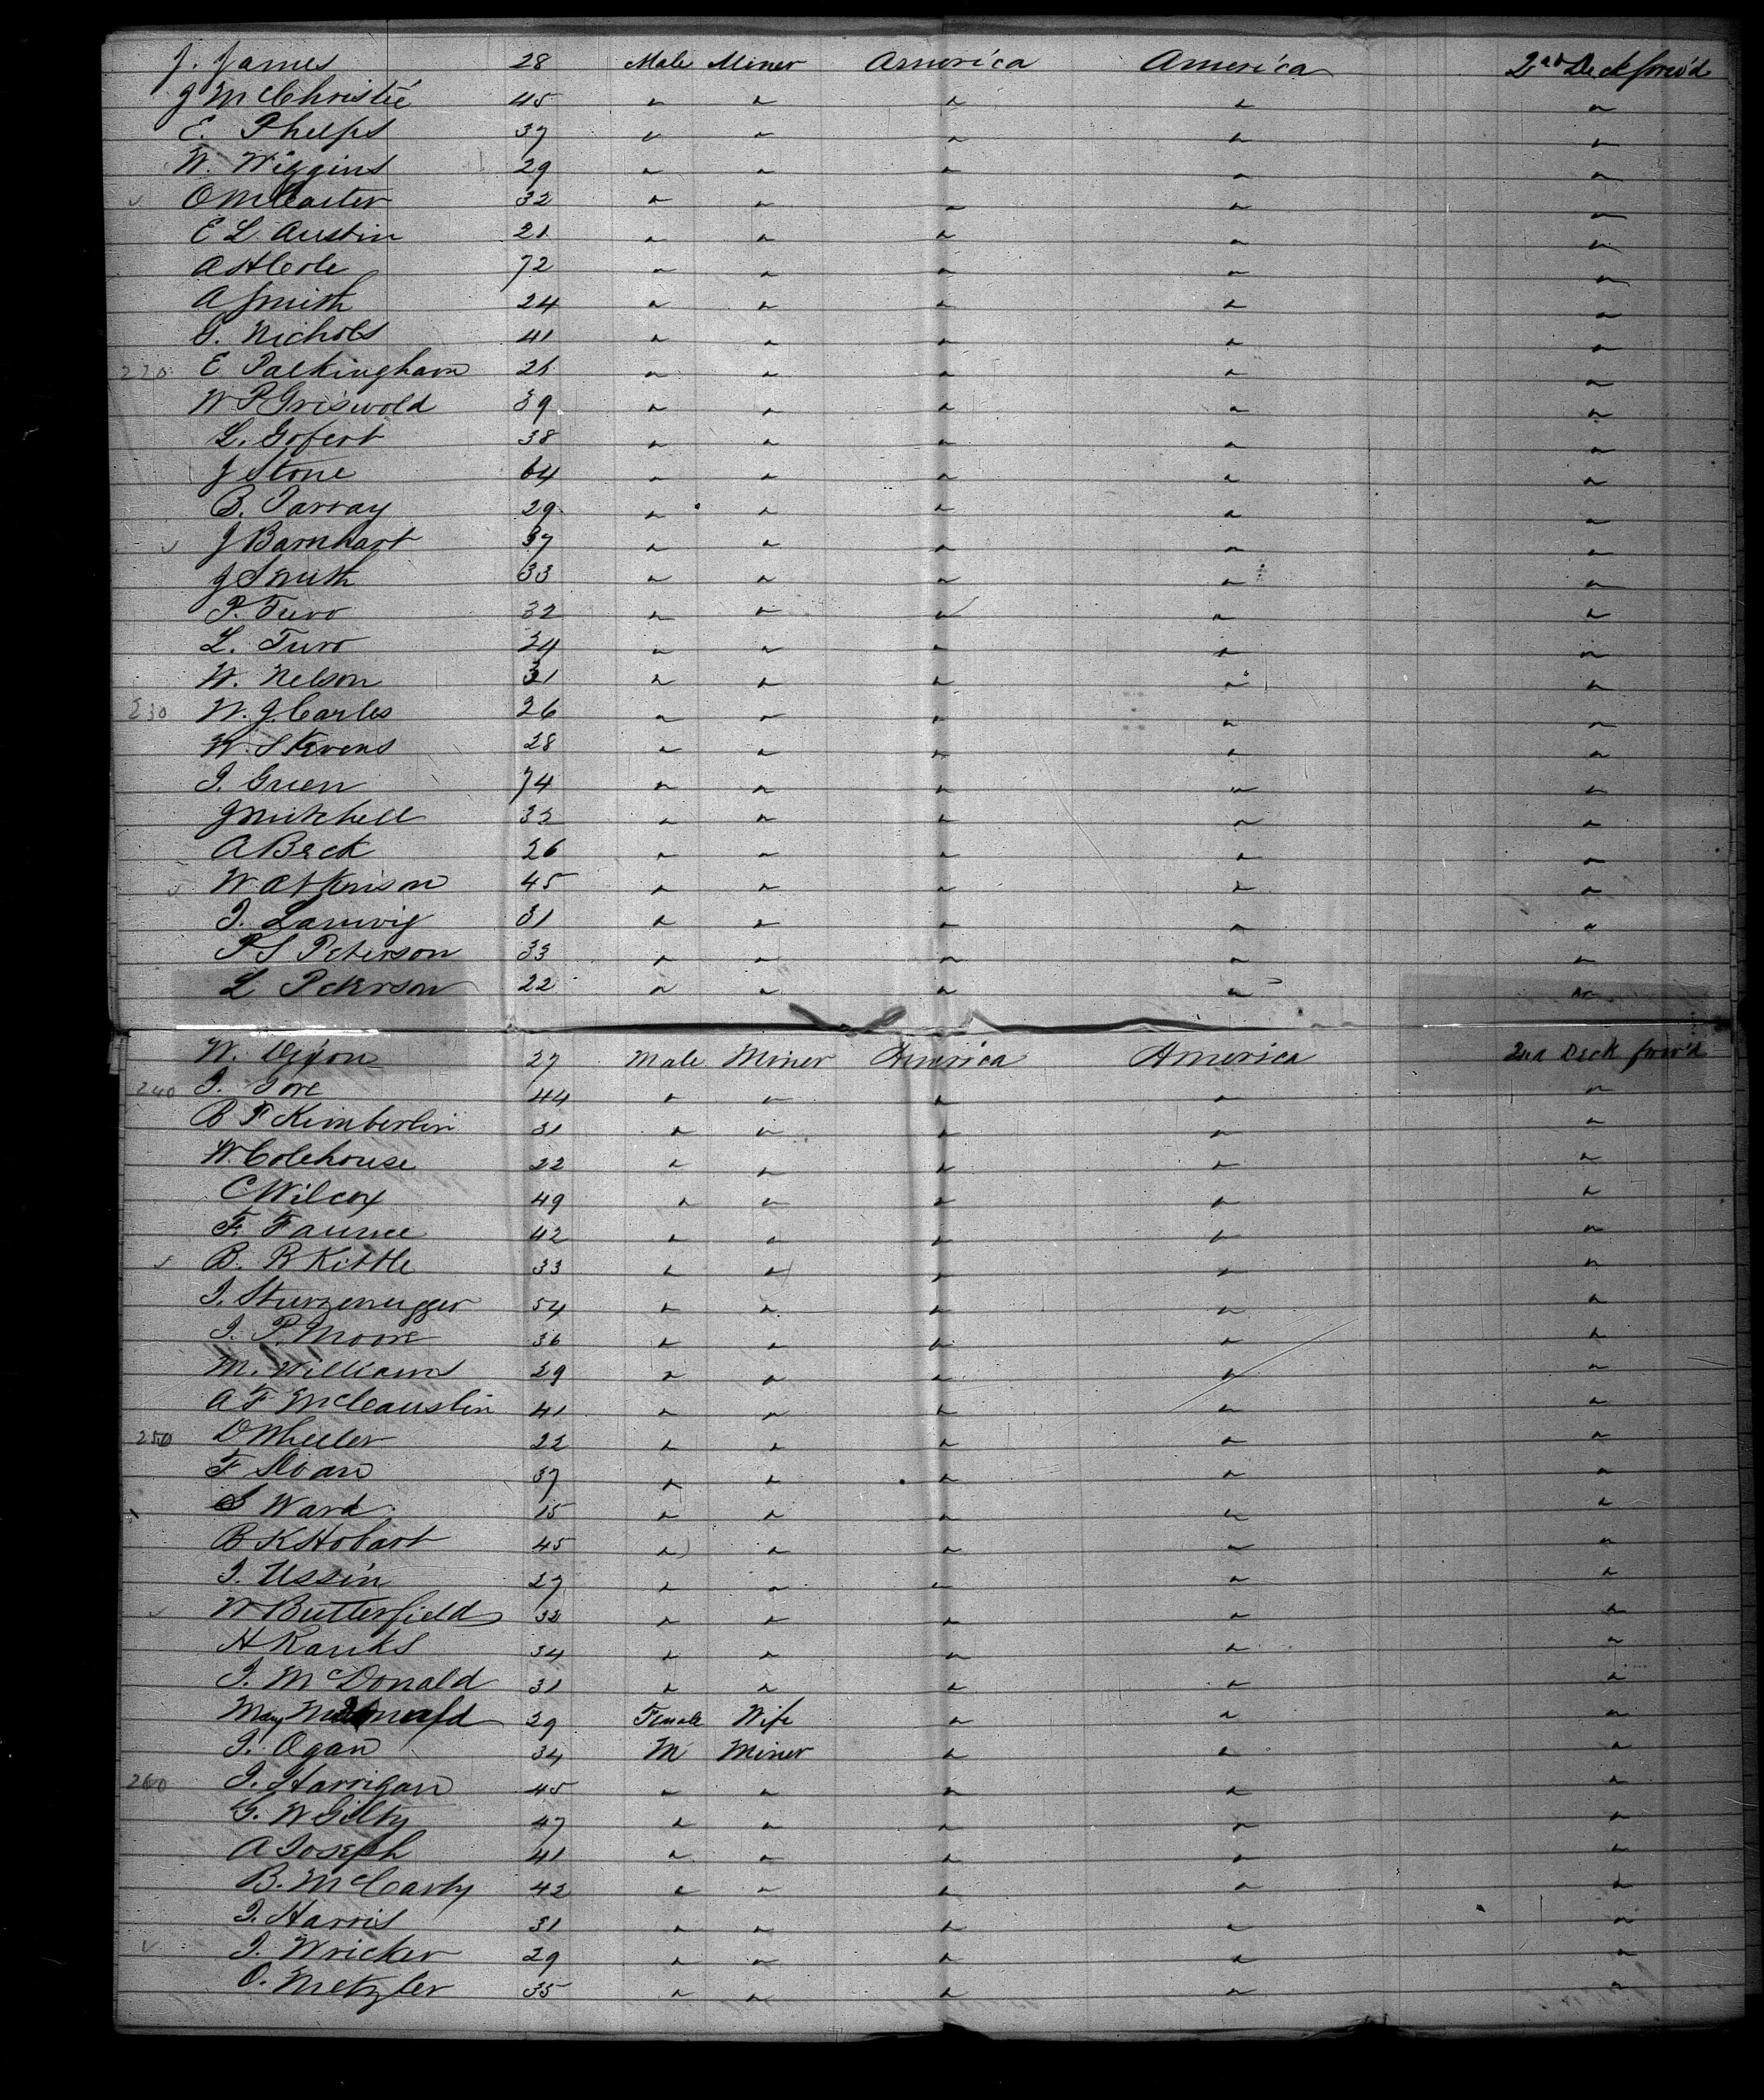 J. James 28 Male Miner America America 2nd Deck forw'd
J McChristie 45 " " " " "
E. Phelps 37 " " " " "
W. Wiggins 29 " " " " "
O McCarter 32 " " " " "
E L Austin 21 " " " " "
A H Cole 72 " " " " "
A Smith 24 " " " " "
G. Nichols 41 " " " " "
220 E Packingham 26 " " " " "
W P Griswold 39 " " " " "
L. Gofert 38 " " " " "
J Stone 64 " " " " "
B. Parray 29 " " " " "
J Barnhart 37 " " " " "
J Smith 33 " " " " "
P. Turo 32 " " " " "
L. Turo 24 " " " " "
W. Nelson 31 " " " " "
230 W. J. Carles 26 " " " " "
W. Stevens 28 " " " " "
I. Green 74 " " " " "
J Mitchell 33 " " " " "
A Beck 26 " " " " "
W Atkinson 45 " " " " "
I. Lanwig 31 " " " " "
P S Peterson 33 " " " " "
L Peterson 22 " " " " "
W. Dixon 27 Male Miner America America 2nd Deck forw'd
240 I. Tore 44 " " " " "
B F Kimberlin 31 " " " " "
W. Colehouse 22 " " " " "
C Wilcox 49 " " " " "
F. Faunce 42 " " " " "
B. R Kittle 33 " " " " "
I. Sturzenegger 54 " " " " "
I. P. Moore 36 " " " " "
M. Williams 29 " " " " "
A F McCauslin 41 " " " " "
250 D Wheeler 22 " " " " "
F Sloan 37 " " " " "
S Ward 15 " " " " "
B K Hobart 45 " " " " "
I. Ussin 27 " " " " "
W Butterfield 32 " " " " "
H Ranks 34 " " " " "
I. McDonald 31 " " " " "
Mary McDonald 29 Female Wife " " "
I. Ogan 34 M Miner " " "
260 I. Harrigan 45 " " " " "
G. W Gilty 47 " " " " "
A Joseph 41 " " " " "
B. McCarty 42 " " " " "
I. Harris 31 " " " " "
I. Wricker 29 " " " " "
O. Metzler 35 " " " " "